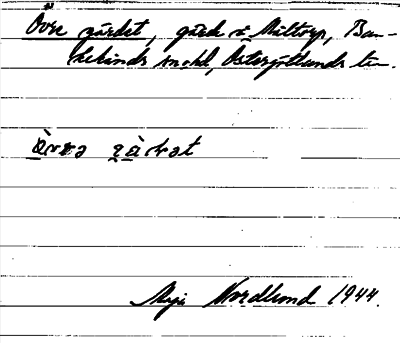 Övre gärdet, gärde i Miltorp, Ban-
kekinds snhd, Östergötlands län.
Övrə gäret
Maja Nordlund 1944.